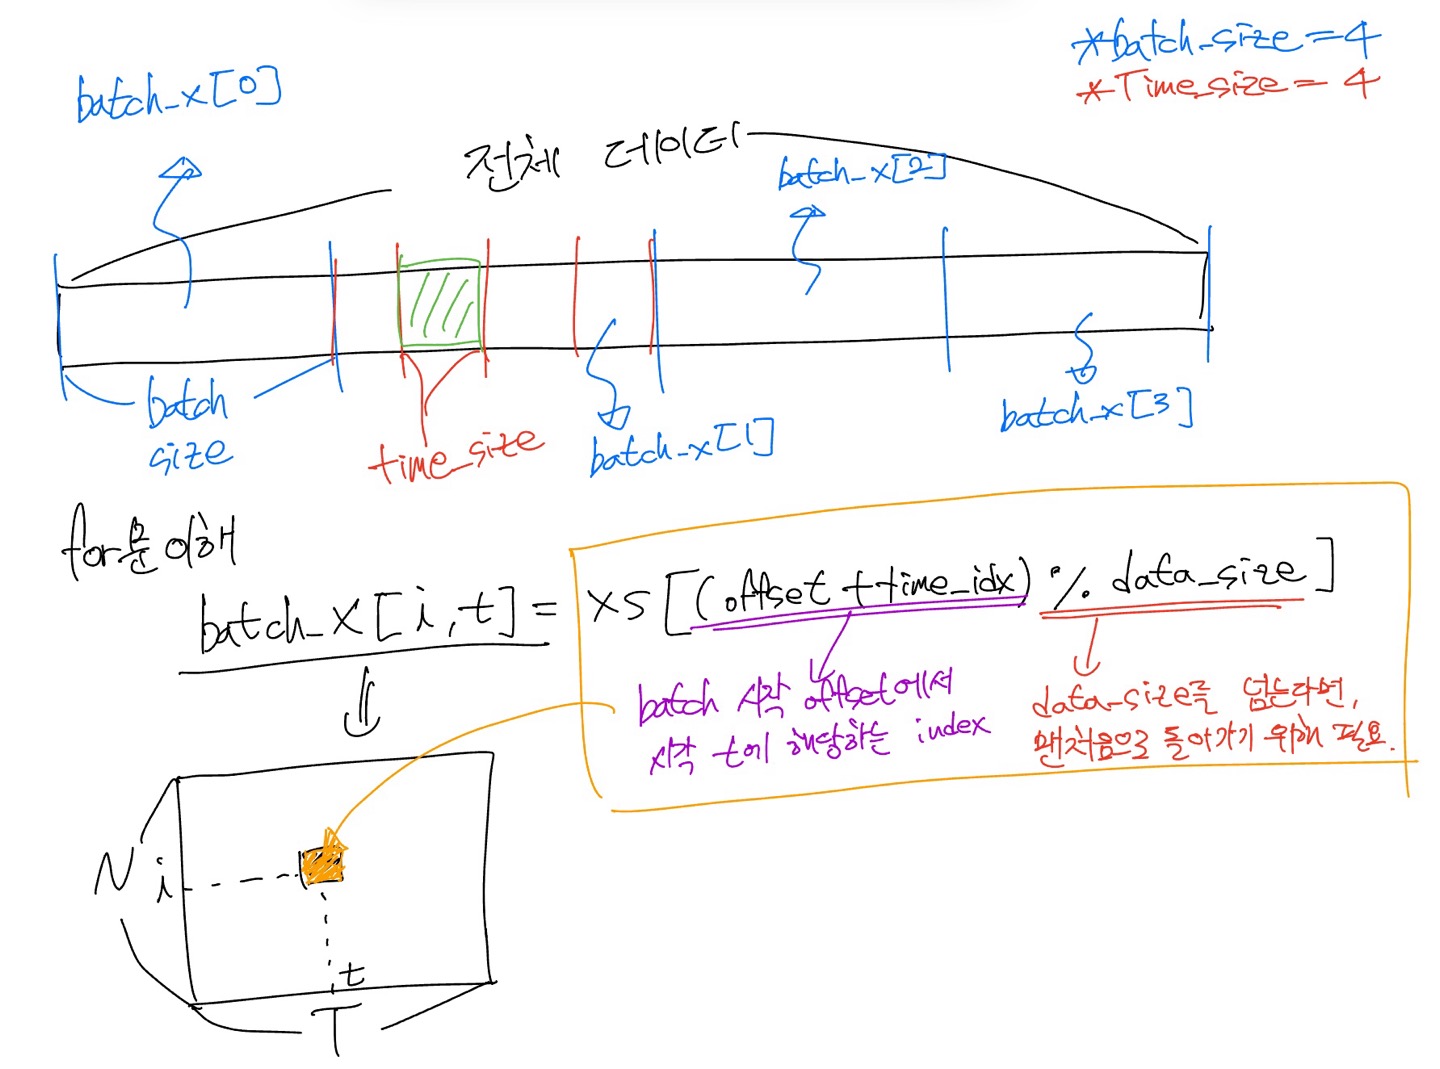 *batch_size=4
*Time_size=4
batch_x[0]
전체 데이터
batch_x[2]
batch
size
time_size
batch_x[1]
batch_x[3]
for문 이해
batch_x[i,t]= xs[(offset+time_idx) % data_size]
batch 시작 offset에서
시각 t에 해당하는 index
data-size를 넘는다면,
맨처음으로 돌아가기 위해 필요.
N
i
t
T